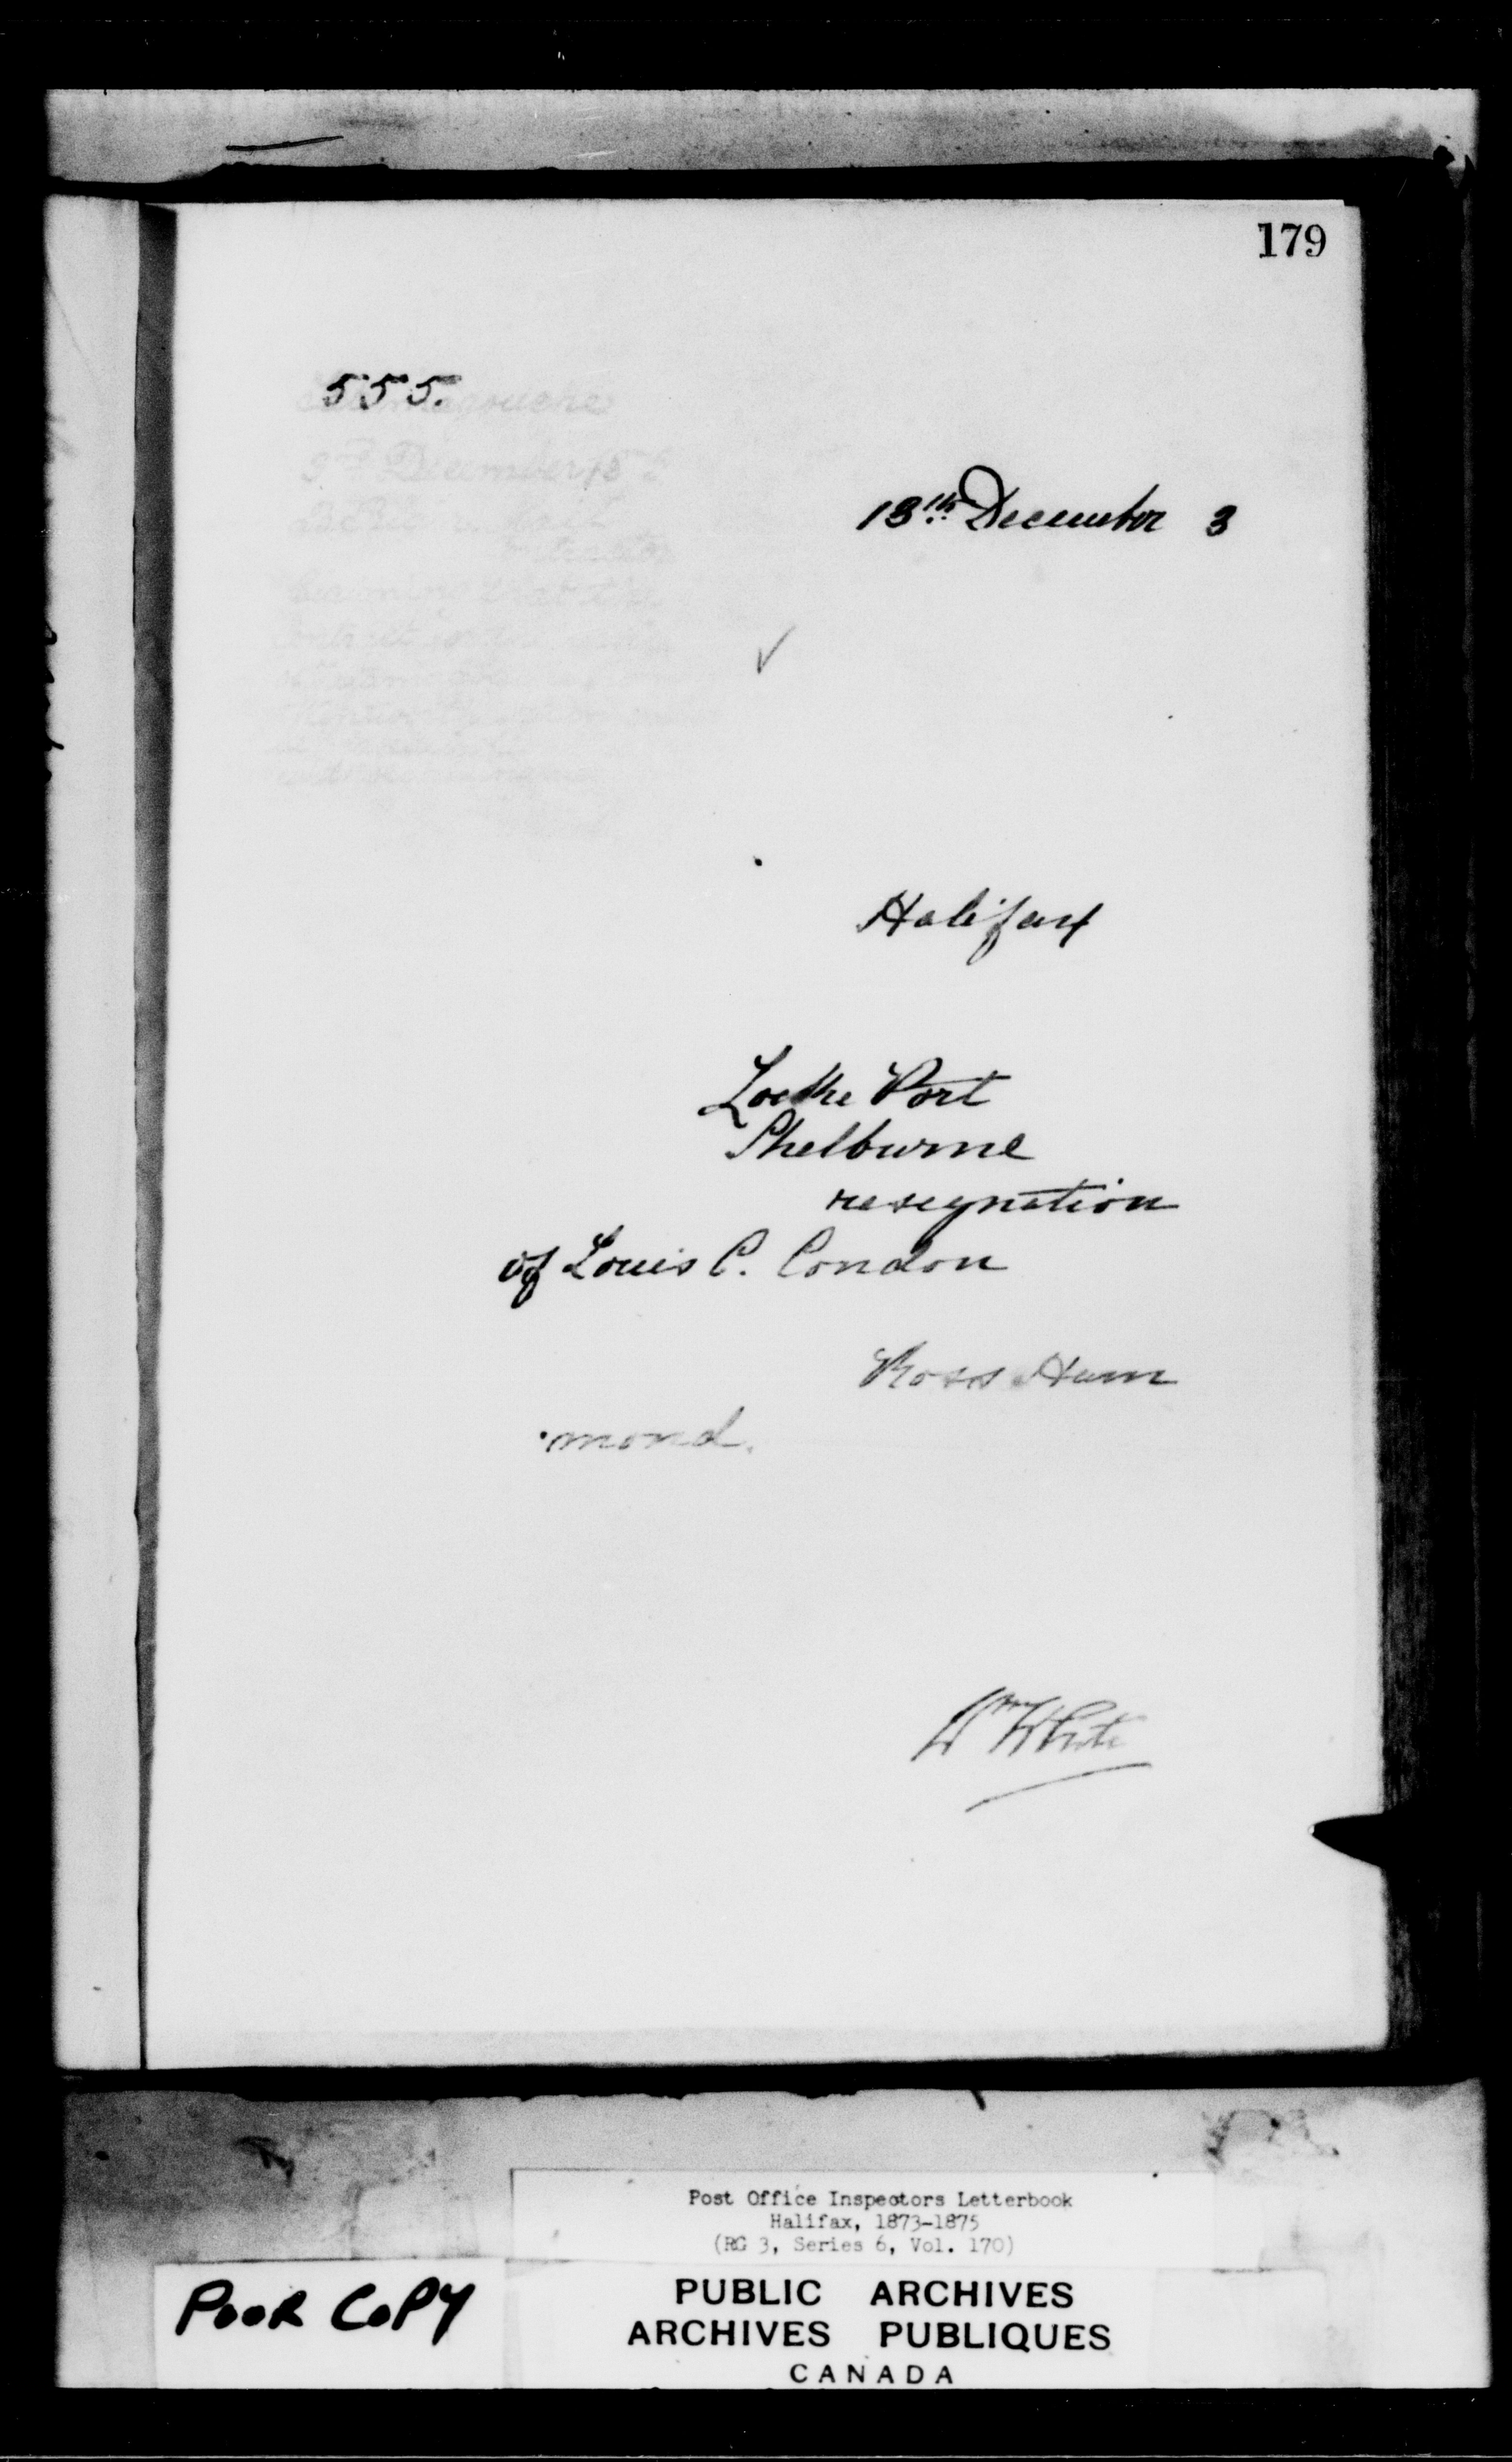 179
555.
13th December 3
Halifax
Locke Port
Shelburne
resignation
of Louis C. Condon
Ross Ham
mond.
Wm White
Post Office Inspectors Letterbook
Halifax, 1873-1875
(RG 3, Series 6, Vol. 170)
POOR COPY
PUBLIC ARCHIVES
ARCHIVES PUBLIQUES
CANADA